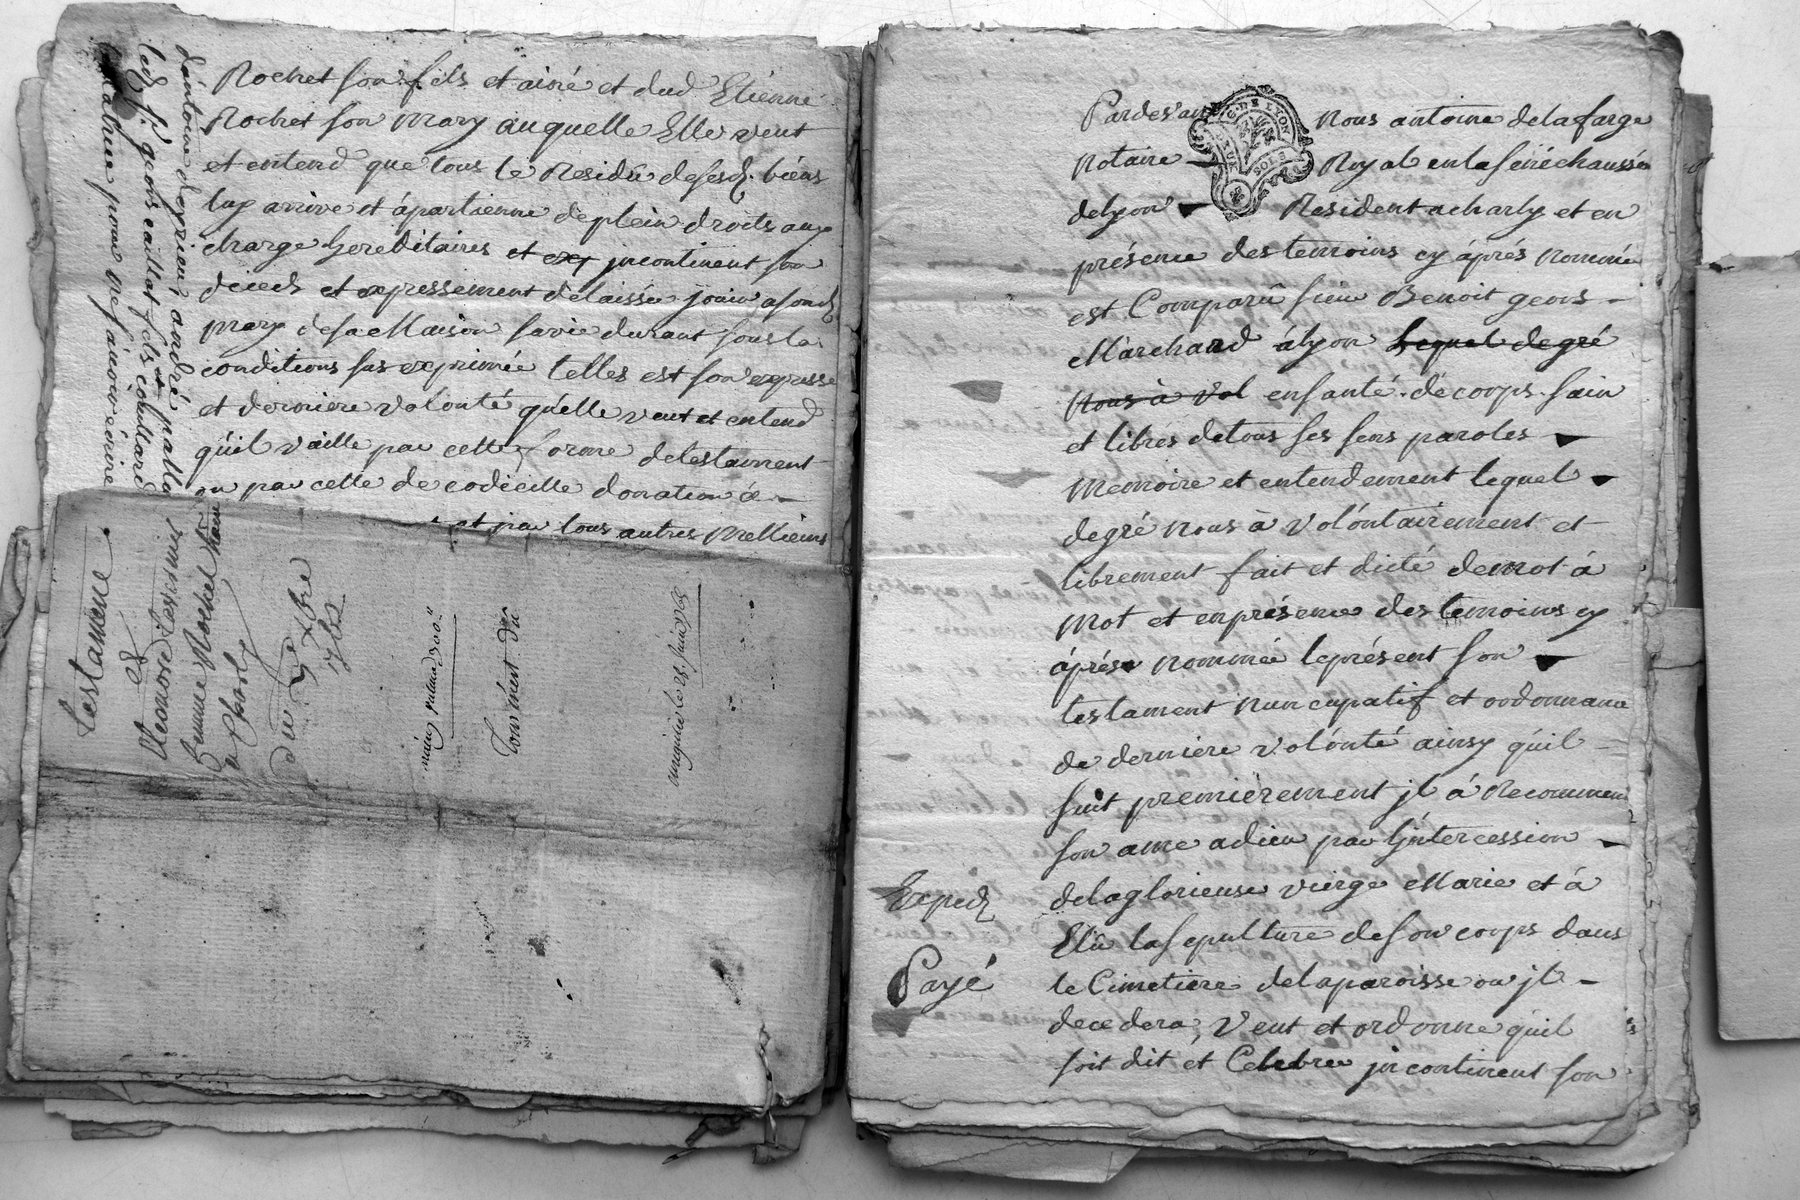 Rochet son fils et ainé et dud Etienne
Rochet son mary auquelle Elle veut
et entend que tous le Residû desesd. biéns
luy arrive et ápartienne de plein droits aux
charge hereditaires et incontinent son
déceds et expressement délaissée jouir asond
mary desa Maison savie durant sous la
conditions sus exprimée telles est son expresse
et derniere volonté qu'elle veut et entend
qu'il vaille par cette forme detestament
ou par celle de codicille donation á
et par tous autres Mellieurs
d'antoine andré
led. Sr. geons caillat fils
pour ne sçavoir écrire
testament
de
Eleonore
femme Rochet
a Charly
du 9e xbre
Controlle du
Pardevant Nous antoine delafarge
G. DE LYON
DEUX SOLS
Notaire Royal enlasénéchaussée
delyon Resident acharly et en
présence des temoins cy áprés nommé
est Comparû sieur Benoit geons
Marchand ályon Lequel degré
Nous à vol ensanté de corps sain
et librés detous ses sens paroles
Memoire et entendement lequel
degré nous à volóntairement et
librement fait et dicté demot á
Mot et enprésence des temoins cy
áprés nommée leprésent son
testament nuncupatif et ordonnance
de derniére volónté ainsy quil
suit premiérement jl á Recommend
son ame adieu par l'jntercession
delaglorieuse vierge Marie et á
Elû lasepulture deson corps dans
le Cimetiere delaparoisse ou jl
decedera, Veut et ordonne quil
soit dit et Celebree jncontinent son
Exped
Payé